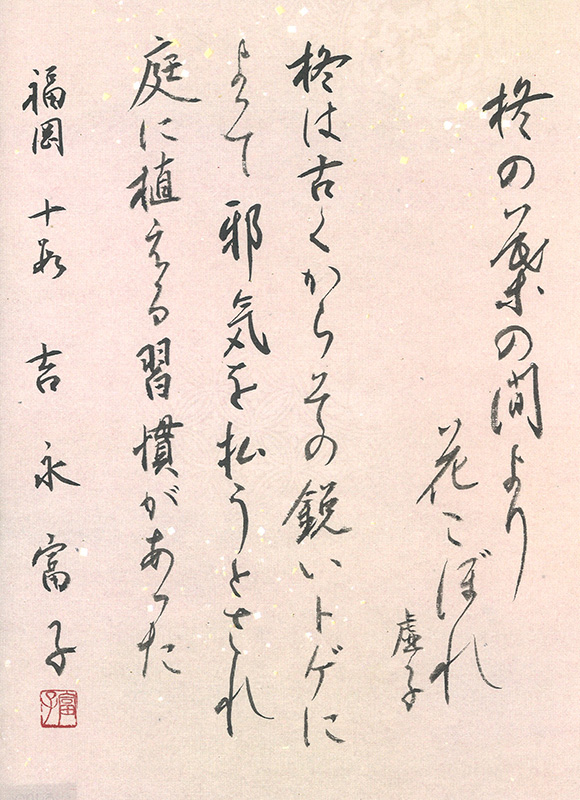 柊の葉の間より
花こぼれ
虚子
柊は古くからその鋭いトゲに
よって邪気を払うとされ
庭に植える習慣があった
福岡 十段 吉永富子
富子